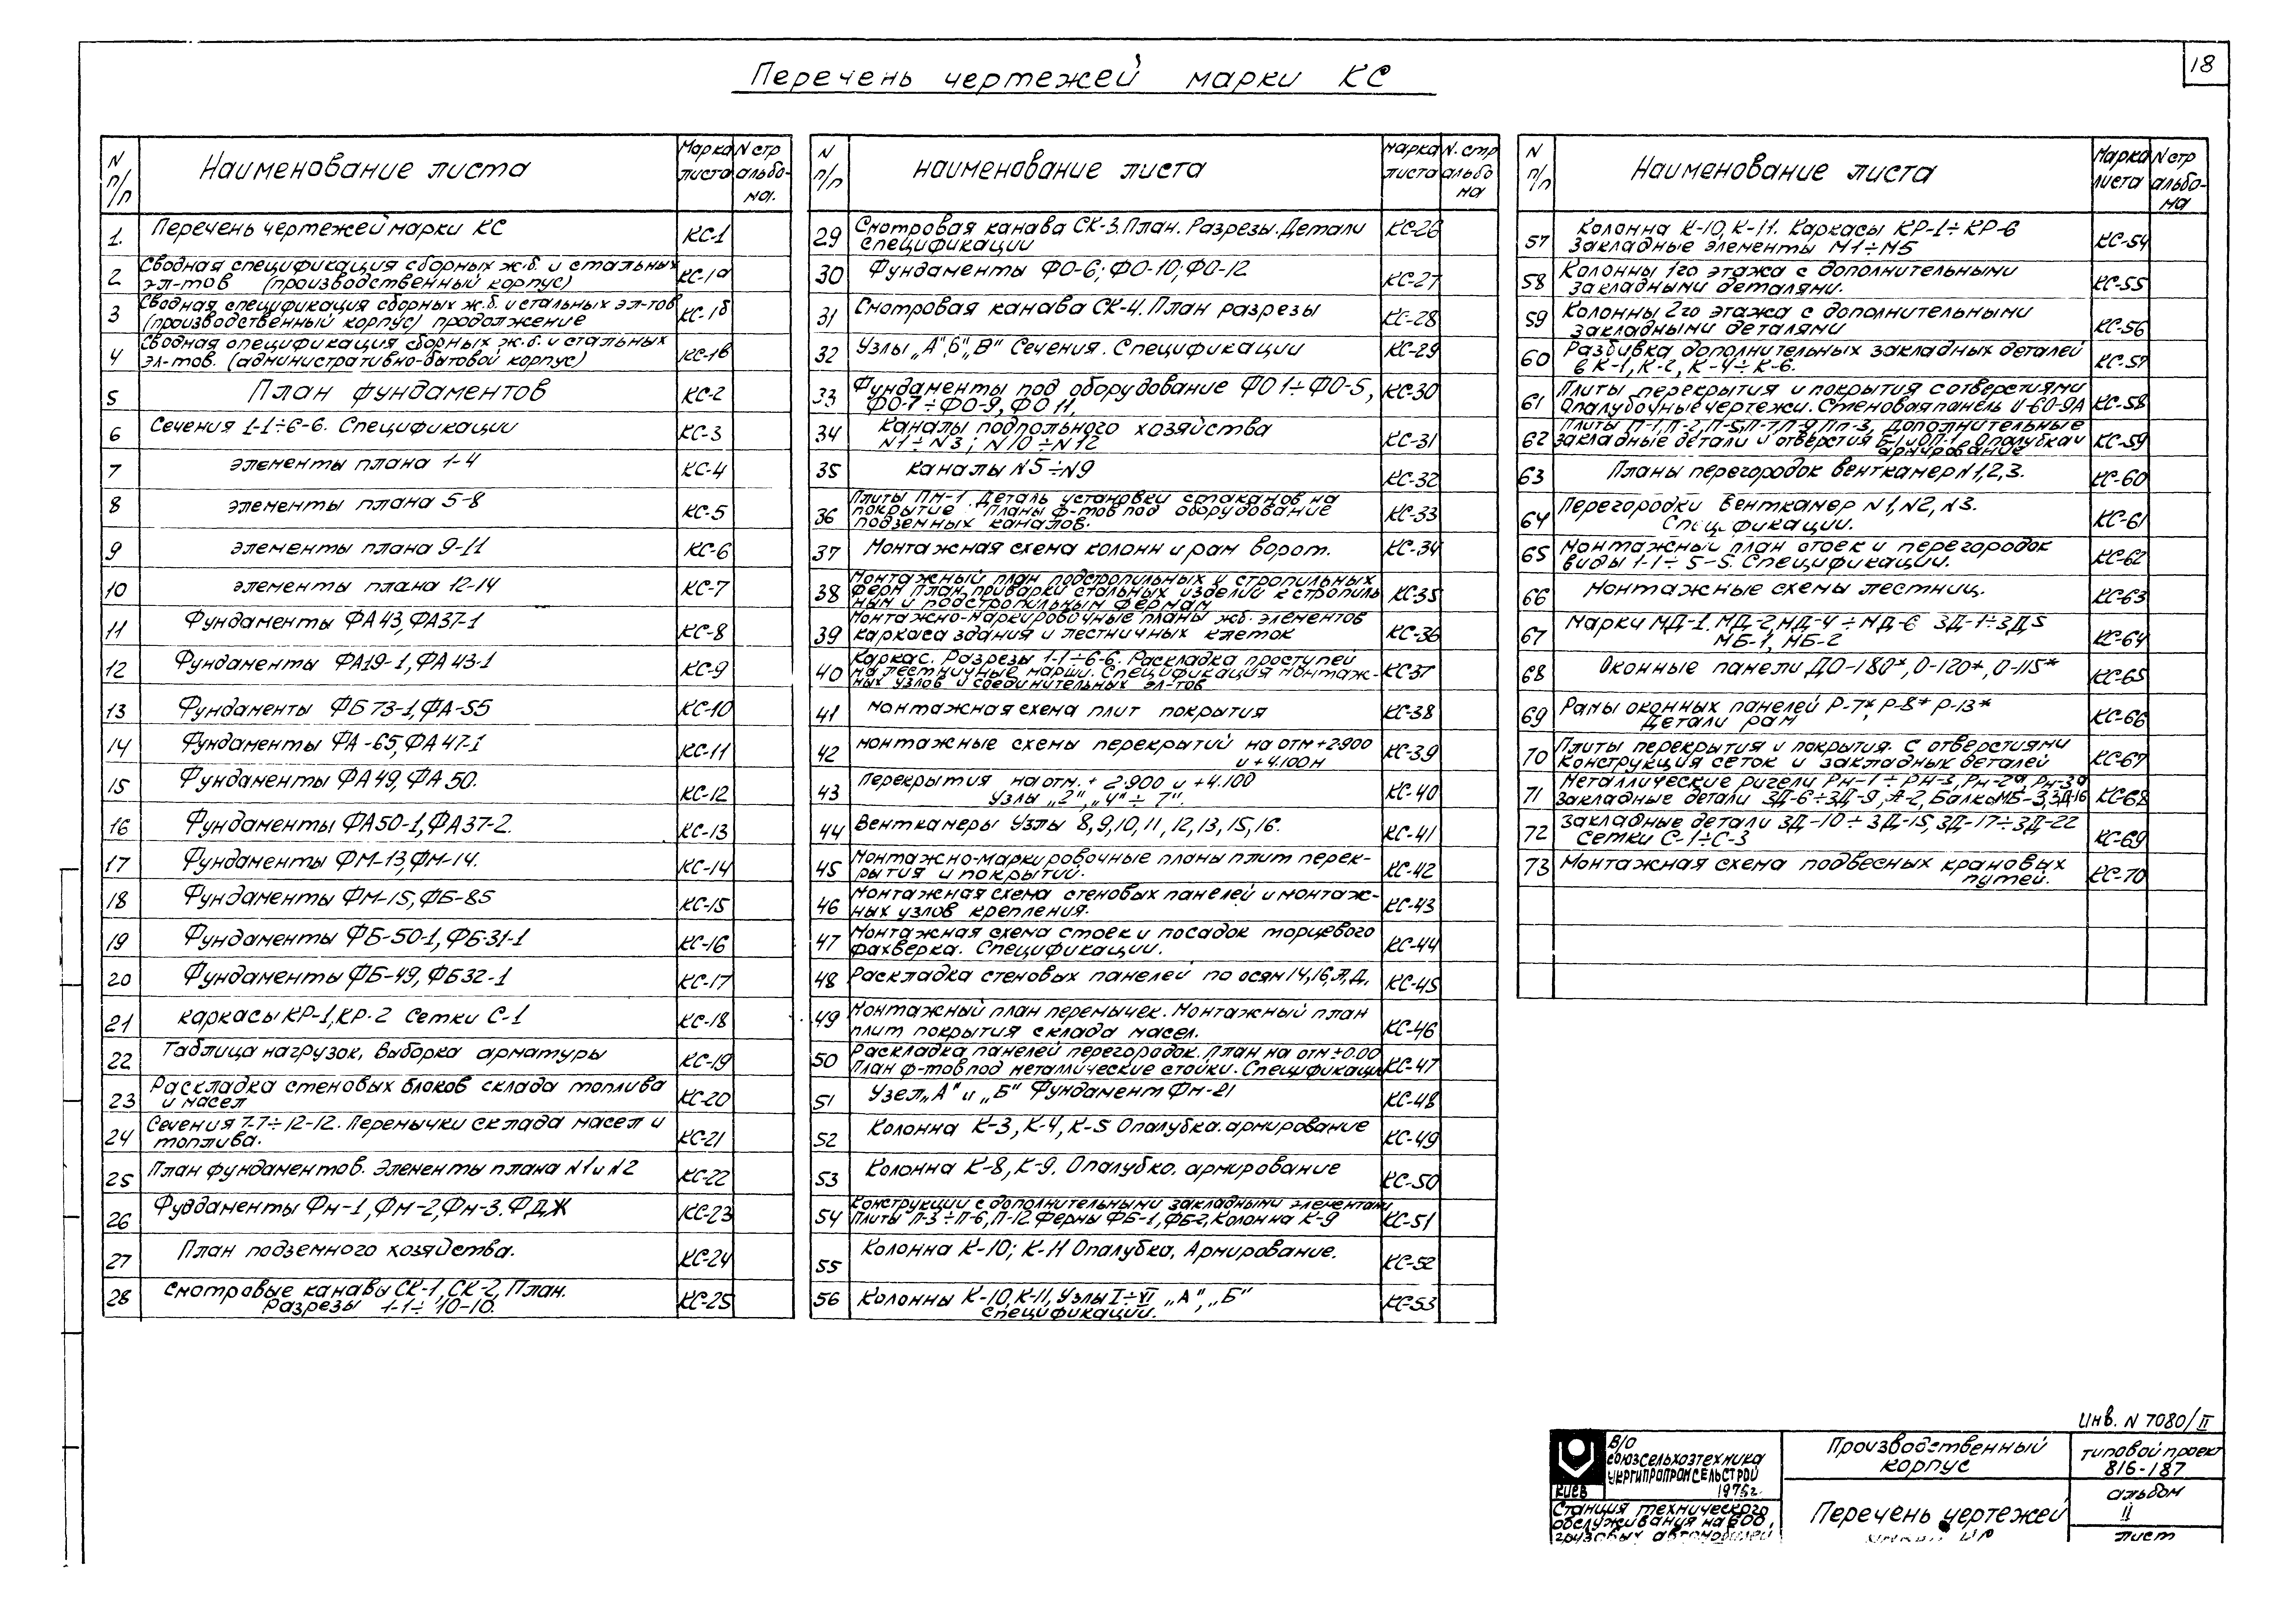 18
Перечень чертежей марки КС
N п/п Наименование листа Марка листа N стр альбо-ма.
1. Перечень чертежей марки КС КС-1
2 Сводная спецификация сборных ж.б. и стальных
эл-тов (производственный корпус) КС-1а
3 Сводная спецификация сборных ж.б. и стальных эл-тов
(производственный корпус) продолжение КС-1б
4 Сводная спецификация сборных ж.б. и стальных
эл-тов. (административно-бытовой корпус) КС-1в
5 План фундаментов КС-2
6 Сечения 1-1÷6-6. Спецификации КС-3
7 элементы плана 1-4 КС-4
8 элементы плана 5-8 КС-5
9 элементы плана 9-11 КС-6
10 элементы плана 12-14 КС-7
11 Фундаменты ФА43, ФА37-1 КС-8
12 Фундаменты ФА19-1, ФА 43-1 КС-9
13 Фундаменты ФБ73-1, ФА-55 КС-10
14 Фундаменты ФА-65, ФА47-1 КС-11
15 Фундаменты ФА49, ФА 50. КС-12
16 Фундаменты ФА50-1, ФА37-2. КС-13
17 Фундаменты ФМ-13, ФМ-14. КС-14
18 Фундаменты ФМ-15, ФБ-85 КС-15
19 Фундаменты ФБ-50-1, ФБ31-1 КС-16
20 Фундаменты ФБ-49, ФБ32-1 КС-17
21 каркасы КР-1, КР-2 Сетки С-1 КС-18
22 Таблица нагрузок, выборка арматуры КС-19
23 Раскладка стеновых блоков склада топлива
и масел КС-20
24 Сечения 7-7÷12-12. Перемычки склада масел и
топлива. КС-21
25 План фундаментов. Элементы плана N1 и N2 КС-22
26 Фуддаменты Фм-1, Фм-2, Фм-3. ФДЖ КС-23
27 План подземного хозяйства. КС-24
28 Смотровые канавы СК-1, СК-2, План.
Разрезы 1-1÷10-10. КС-25
N п/п Наименование листа марка листа N. стр альбо ма
29 Смотровая канава СК-3. План. Разрезы. Детали
спецификации КС-26
30 Фундаменты ФО-6; ФО-10; ФО-12 КС-27
31 Смотровая канава СК-4. План разрезы КС-28
32 Узлы „А", Б", „В" Сечения. Спецификации КС-29
33 Фундаменты под оборудование ФО1÷ФО-5,
ФО-7÷ФО-9, ФО 11. КС-30
34 Каналы подпольного хозяйства
N1÷N3; N10÷N12 КС-31
35 каналы N5÷N9 КС-32
36 Плиты ПМ-1. Деталь установки стаканов на
покрытие. Планы ф-тов под оборудование
подземных каналов. КС-33
37 Монтажная схема колонн и рам ворот. КС-34
38 Монтажный план подстропильных и стропильных
ферм План приварки стальных изделий к стропиль
ным и подстропильным фермам КС-35
39 Монтажно-маркировочные планы жб. элементов
каркаса здания и лестничных клеток КС-36
40 Каркас. Разрезы 1-1÷6-6. Раскладка проступей
на лестничные марши. Спецификация монтаж-
ных узлов и соединительных эл-тов КС37
41 монтажная схема плит покрытия КС-38
42 монтажные схемы перекрытий на отм +2.900
и +4.100м КС-39
43 перекрытия на отм. + 2.900 и +4.100
Узлы „2", „4"÷ 7". КС-40
44 Венткамеры Узлы 8, 9, 10, 11, 12, 13, 15, 16. КС-41
45 Монтажно-маркировочные планы плит перек-
рытия и покрытий. КС-42
46 Монтажная схема стеновых панелей и монтаж-
ных узлов крепления. КС-43
47 Монтажная схема стоек и посадок торцевого
фахверка. Спецификации. КС-44
48 Раскладка стеновых панелей по осям 14, 16, Л, Д. КС-45
49 Монтажный план перемычек. Монтажный план
плит покрытия склада масел. КС-46
50 Раскладка панелей перегородок. План на отм ±0.00
План ф-тов под металлические стойки. Спецификации КС-47
51 Узел „А" и „Б" Фундамент Фм-21 КС-48
52 Колонна К-3, К-4, К-5 Опалубка. армирование КС-49
53 Колонна К-8, К-9. Опалубка, армирование КС-50
54 Конструкции с дополнительными закладными элементами
Плиты П-3÷П-6, П-12 Фермы ФБ-1, ФБ-2, Колонна К-9 КС-51
55 Колонна К-10; К-11 Опалубка, Армирование. КС-52
56 Колонны К-10, К-11, Узлы I÷VI „А", „Б"
спецификации. КС-53
N п/п Наименование листа Марка листа N стр альбо-ма
57 Колонна К-10, К-11. Каркасы КР-1÷КР-6
Закладные элементы М1÷М5 КС-54
58 Колонны 1го этажа с дополнительными
закладными деталями. КС-55
59 Колонны 2го этажа с дополнительными
закладными деталями КС-56
60 Разбивка дополнительных закладных деталей
в К-1, К-2, К-4÷К-6. КС-57
61 Плиты перекрытия и покрытия с отверстиями
Опалубочные чертежи. Стеновая панель И-60-9А КС-58
62 Плиты П-1, П-2, П-5, П-7, П-9, Пп-3, Дополнительные
закладные детали и отверстия Б-1 и ОП-1. Опалубка и
армирование КС-59
63 Планы перегородок венткамер N1, 2, 3. КС-60
64 Перегородки венткамер N1, N2, N3.
Спецификации. КС-61
65 Монтажный план стоек и перегородок
виды 1-1÷5-5. Спецификации. КС-62
66 Монтажные схемы лестниц. КС-63
67 Марки МД-1, МД-2, МД-4÷МД-6 ЗД-1÷ЗД5
МБ-1, МБ-2 КС-64
68 Оконные панели ДО-180*, О-120*, О-115* КС-65
69 Рамы оконных панелей Р-7*, Р-8* Р-13*
Детали рам КС-66
70 Плиты перекрытия и покрытия. С отверстиями
Конструкция сеток и закладных деталей КС-67
71 Металлические ригели Рм-1÷Рм-3, Рм-2а, Рм-3а
Закладные детали ЗД-6÷ЗД-9, А-2, Балки МБ-3, ЗД-16 КС-68
72 Закладные детали ЗД-10÷ЗД-15, ЗД-17÷ЗД-22
Сетки С-1÷С-3 КС-69
73 Монтажная схема подвесных крановых
путей. КС-70
Инв. N 7080/II
В/О
союзсельхозтехника
Укргипропромсельстрой
Киев 1975г.
Станция технического
обслуживания на 600,
грузовых автомобилей
Производственный
корпус
Перечень чертежей
типовой проект
816-187
альбом
II
лист